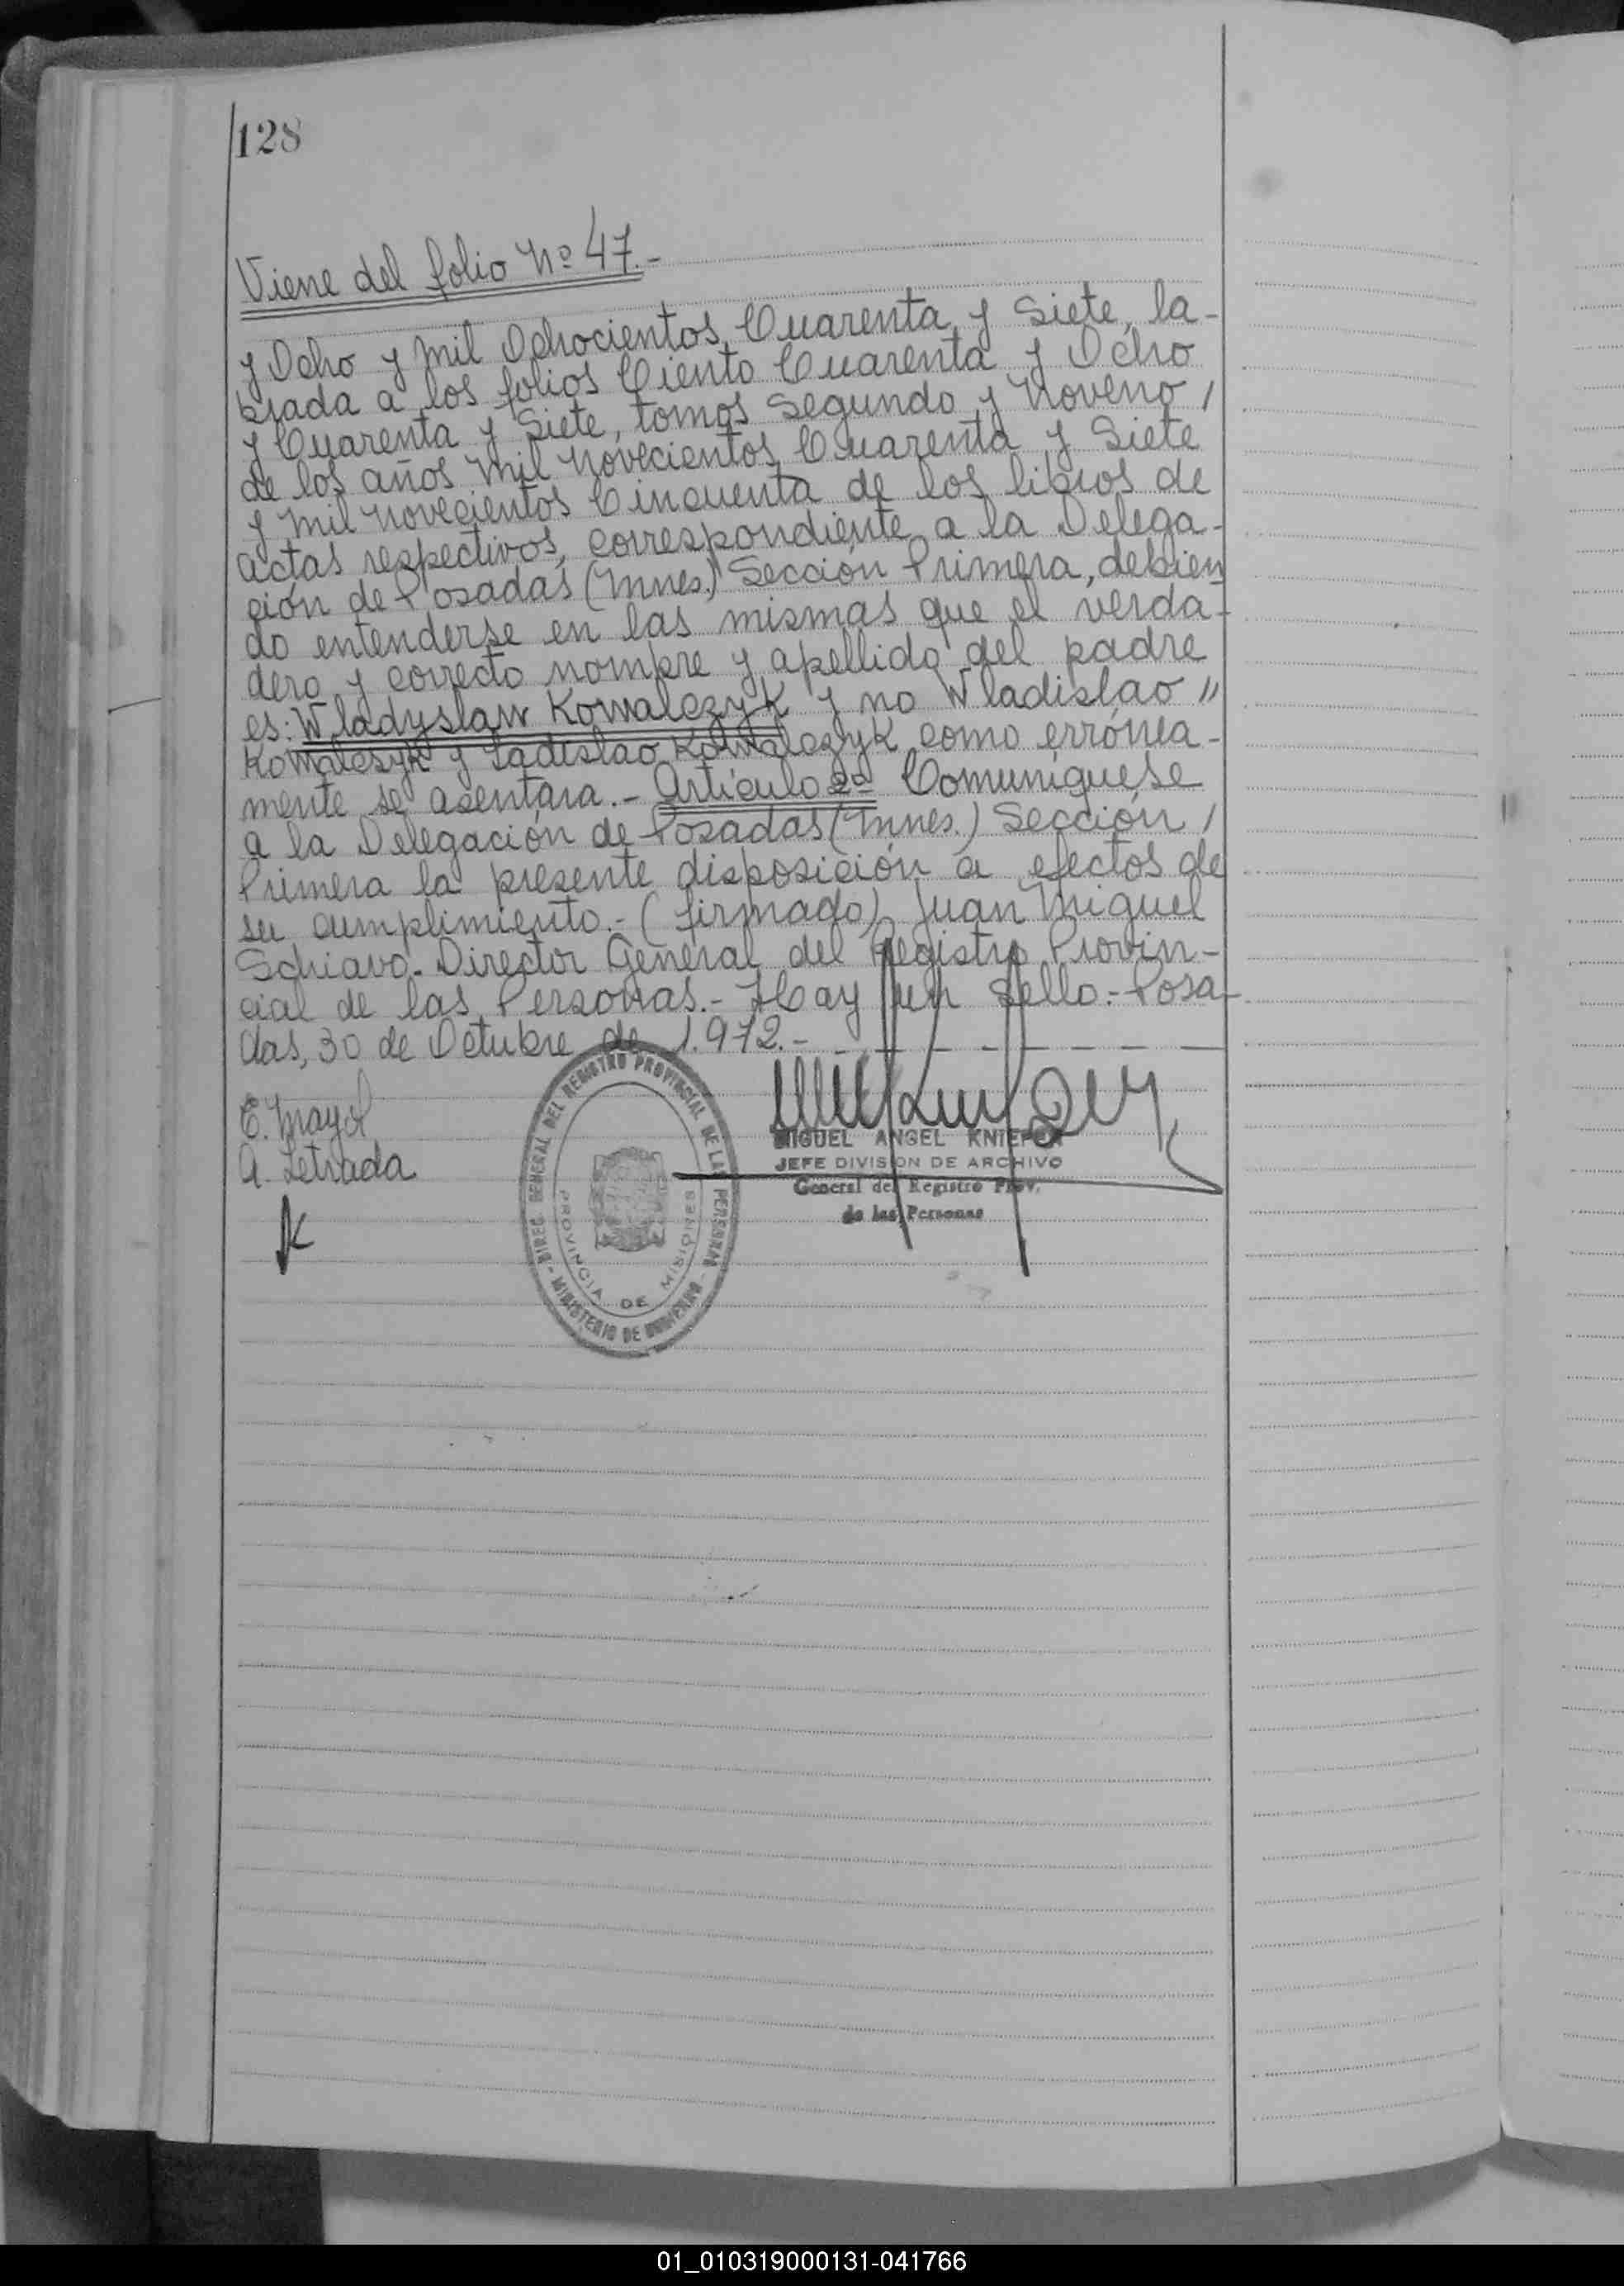 128
Viene del folio Nº 47.-
y Ocho y Mil Ochocientos Cuarenta y Siete, la-
brada a los folios Ciento Cuarenta y Ocho
y Cuarenta y Siete, tomos Segundo y Noveno /
de los años Mil Novecientos Cuarenta y Siete
y Mil Novecientos Cincuenta de los libros de
actas respectivos, correspondiente a la Delega-
ción de Posadas (Mnes.) Sección Primera, debien
do entenderse en las mismas que el verda-
dero y correcto nombre y apellido del padre
es: Wladyslaw Kowalczyk y no Wladislao //
Kowalcsyk y Ladislao Kowalczyk como errónea-
mente se asentara.- Artículo 2º Comuníquese
a la Delegación de Posadas (Mnes.) Sección /
Primera la presente disposición a efectos de
su cumplimiento.- (firmado) Juan Miguel
Schiavo- Director General del Registro Provin-
cial de las Personas.- Hay un Sello.- Posa-
das, 30 de Octubre de 1.972.-
E. Mayol
A. Letrada
DIREC. GENERAL DEL REGISTRO PROVINCIAL DE LAS PERSONAS - MINISTERIO DE GOBIERNO -
PROVINCIA DE MISIONES
MIGUEL ANGEL KNIEPER
JEFE DIVISION DE ARCHIVO
General del Registro Prov.
de las Personas
01_010319000131-041766